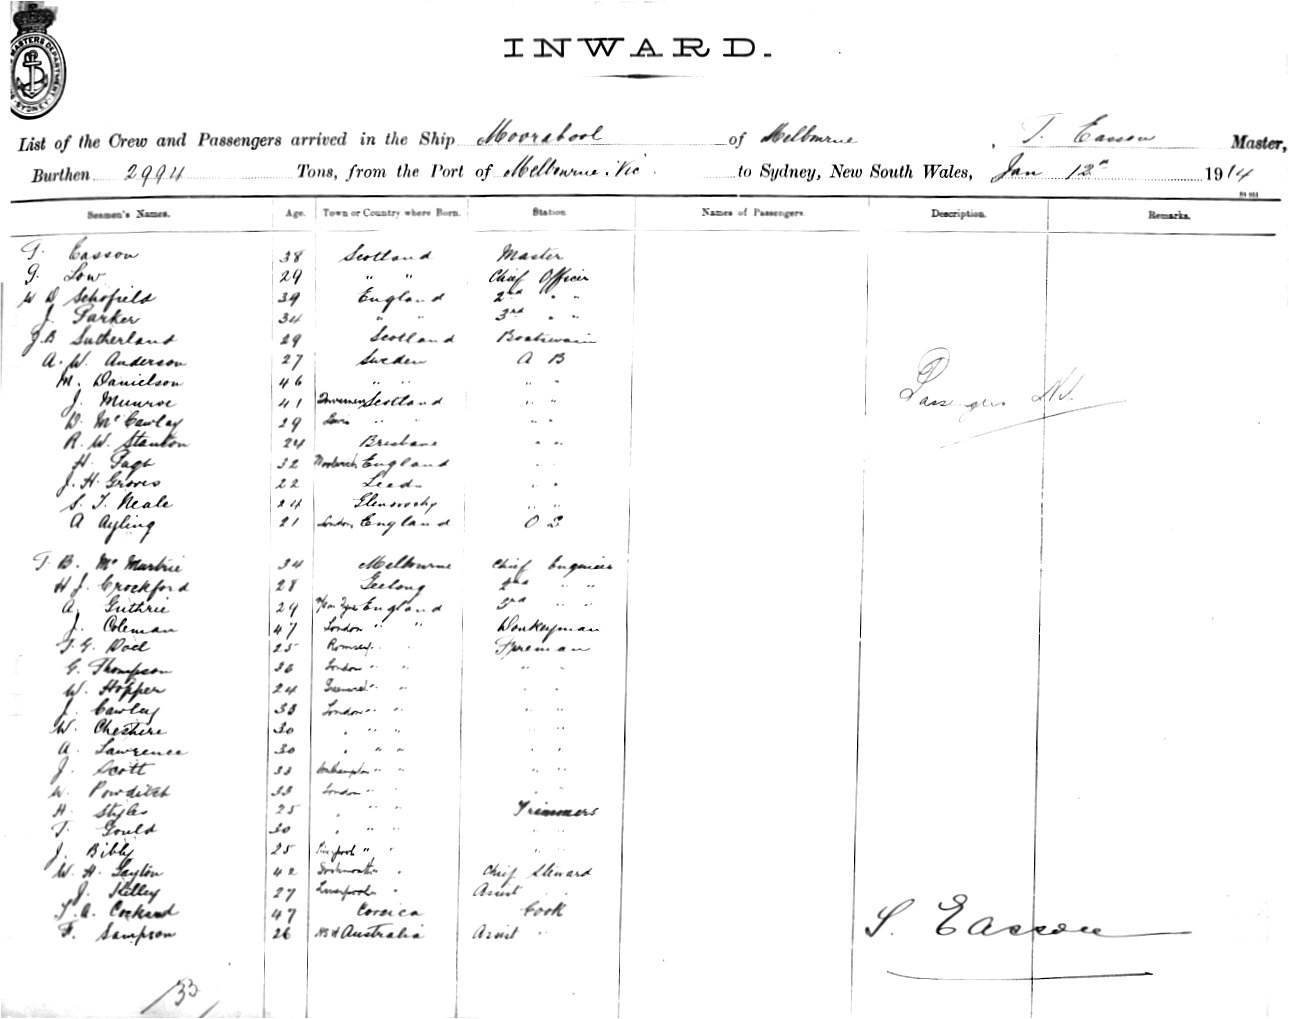 MASTERS DEPARTMENT
SYDNEY
INWARD.
List of the Crew and Passengers arrived in the Ship Moorabool of Melbourne, T. Easson Master,
Burthen 2994 Tons, from the Port of Melbourne Vic. to Sydney, New South Wales, Jan 12th 1914
Seamen's Names. Age. Town or Country where Born. Station Names of Passengers. Description. Remarks.
T. Easson 38 Scotland Master
G. Low 29 " " Chief Officer
W D Schofield 39 England 2nd " "
J. Parker 34 " " 3rd " "
J.B Sutherland 29 Scotland Boatswain
A. W. Anderson 27 Sweden A B
M. Danielson 46 " " " "
J. Munroe 41 Inverness Scotland " "
D. McCawley 29 Lewis " " " "
R. W. Stanton 24 Brisbane " "
H. 32 Woolwich England " "
J. H. Groves 22 Leeds " "
S. T. Neale 24 Glenorchy " "
A Ayling 21 London England O S
Passengers Nil.
T. B. Mc Murtrie 34 Melbourne Chief Engineer
H J. Crockford 28 Geelong 2nd " "
A. Guthrie 29 England 3rd " "
J. Coleman 47 London " " Donkeyman
25 Romsey " " Fireman
G. Thompson 36 London " " " "
W. Hopper 24 Greenwich " " " "
J. Cawley 33 London " " " "
W. Cheshire 30 " " " " "
A. Lawrence 30 " " " " "
J. Scott 33 Southampton " " " "
W. Powditch 33 London " " " "
H. Styles 25 " " " Trimmers
T. Gould 30 " " " " "
J. Bibby 25 Liverpool " " " "
W. H. Layton 42 " " Chief Steward
J. Kelley 27 Liverpool " " Assist " "
47 Corsica Cook
F. Sampson 26 Australia Assist "
T. Easson
33